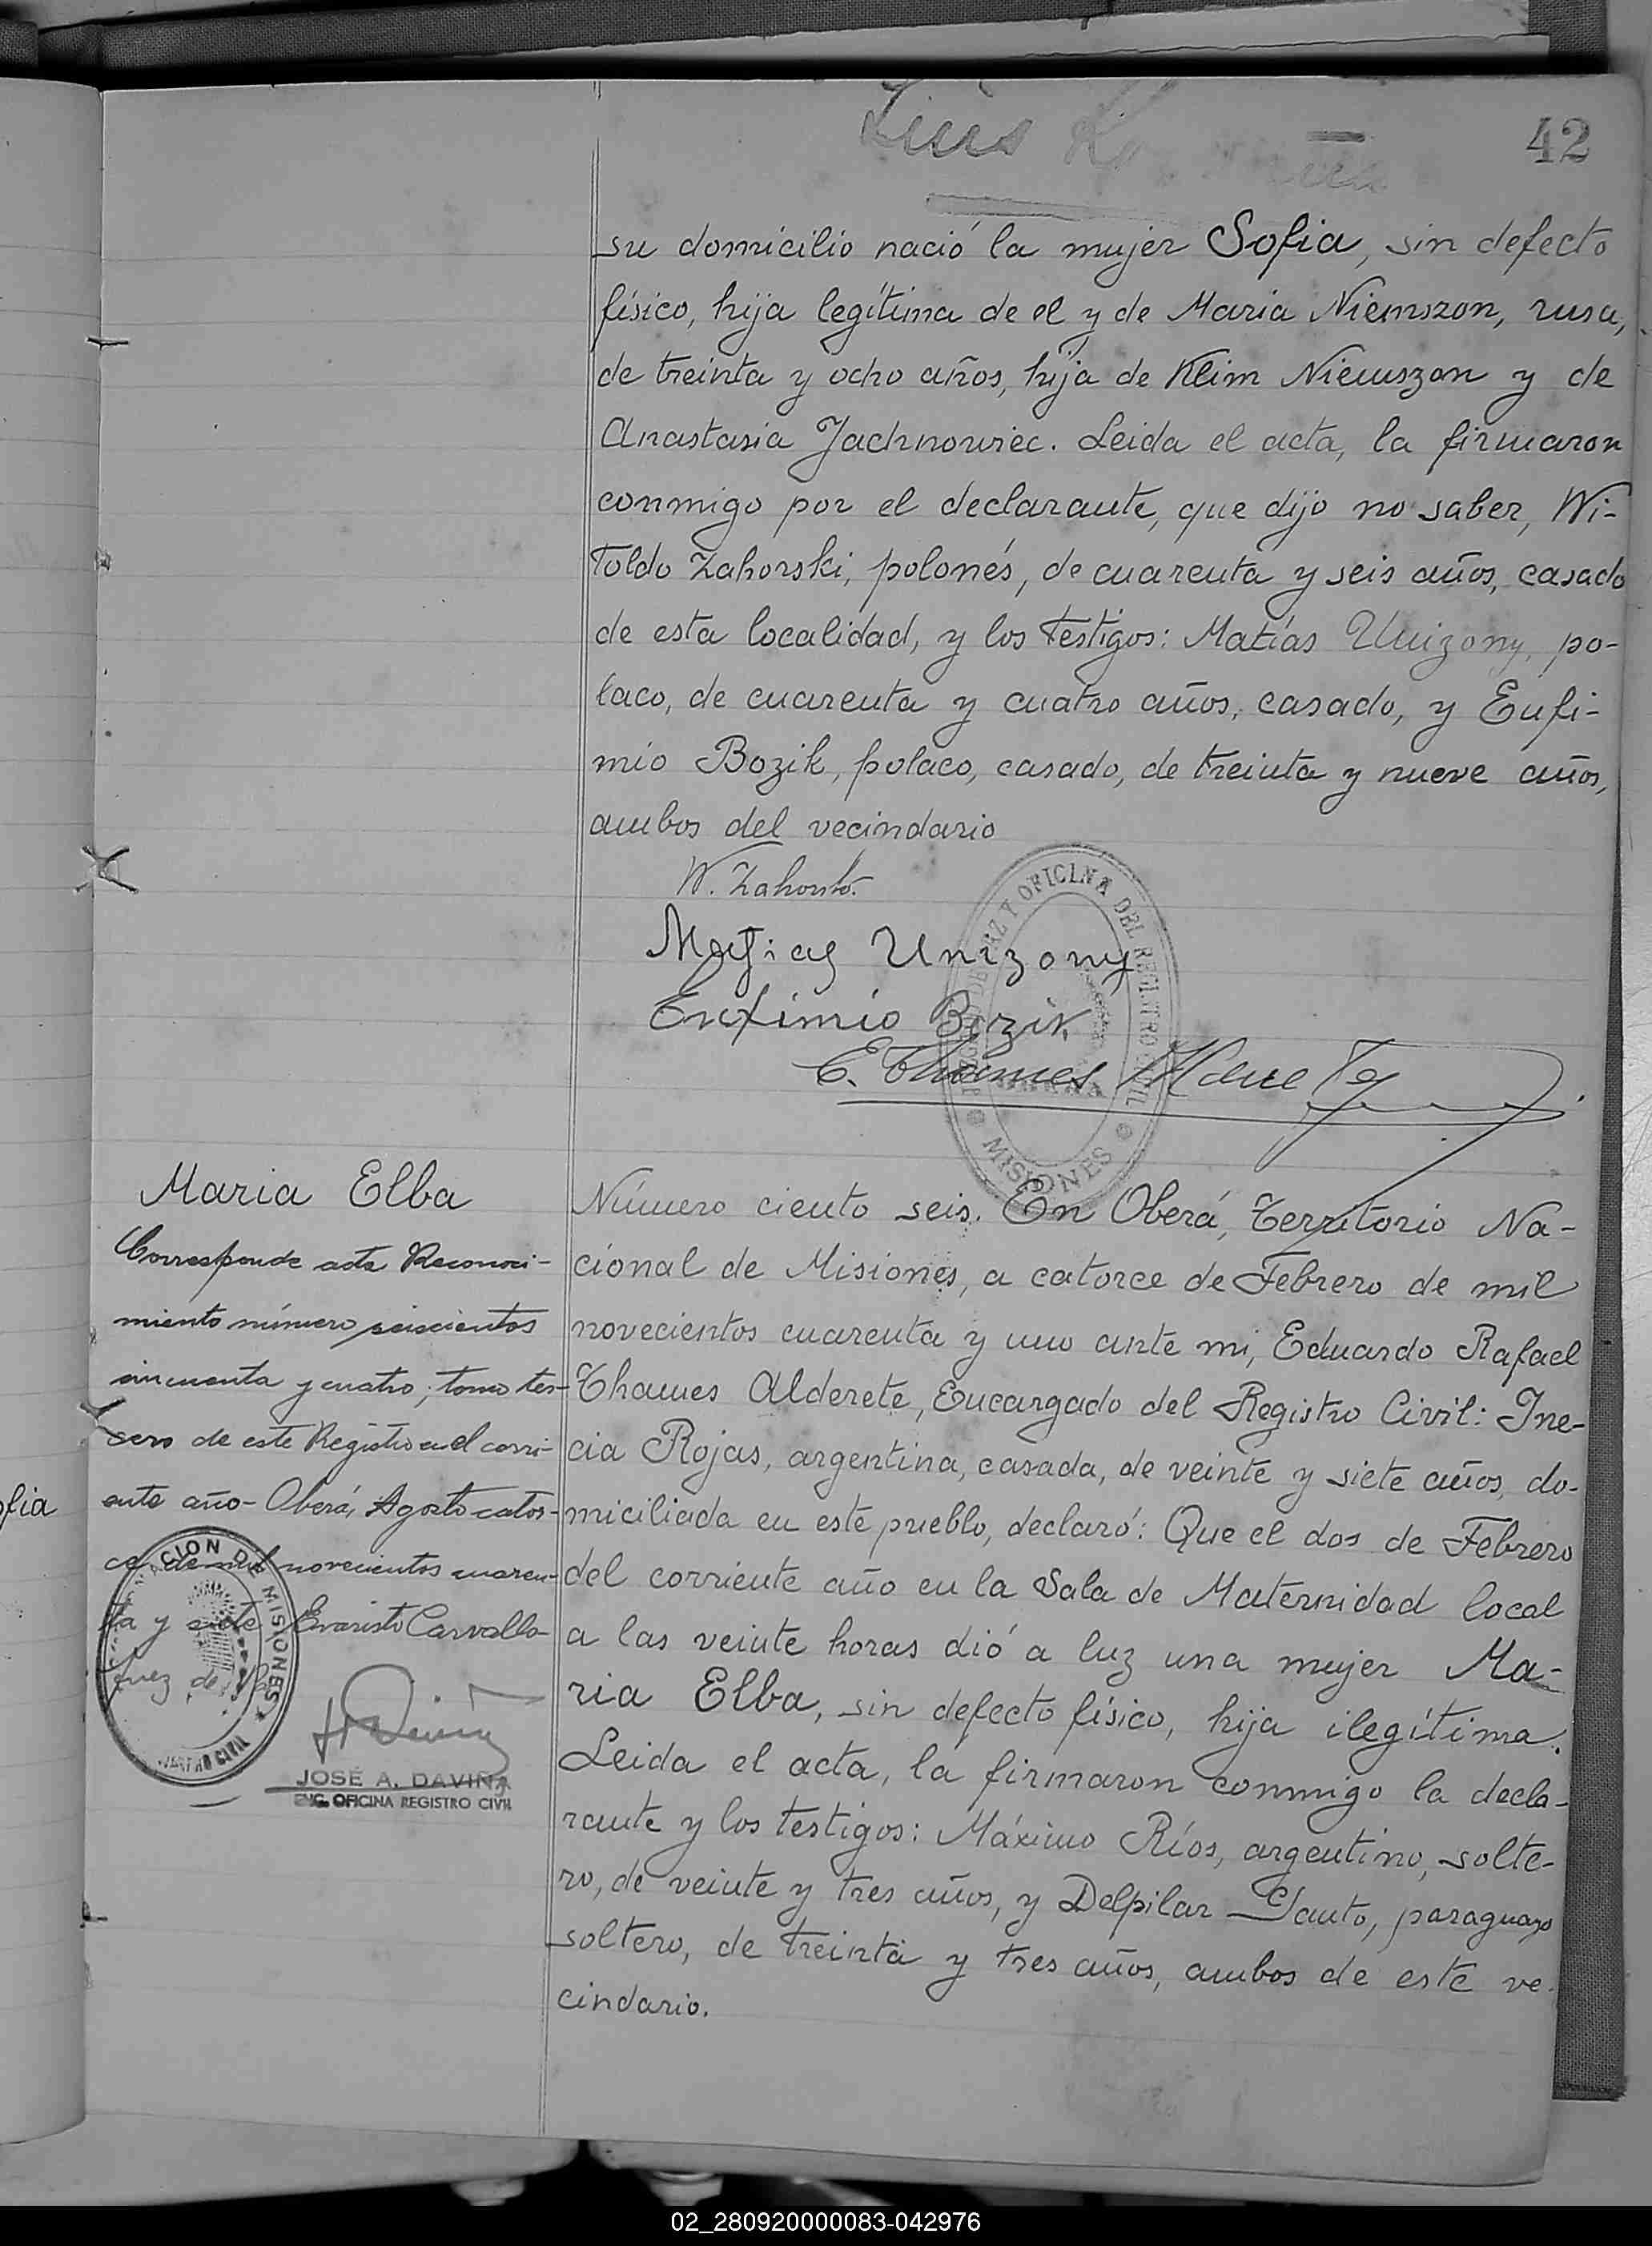 Luis
42
su domicilio nació la mujer Sofia, sin defecto
físico, hija legítima de el y de Maria Niemszon, rusa,
de treinta y ocho años, hija de Klim Niemszon y de
Anastasia Jachnowiec. Leida el acta, la firmaron
conmigo por el declarante, que dijo no saber, Wi-
toldo Zahorski, polonés, de cuarenta y seis años, casado
de esta localidad, y los testigos: Matías Unizony, po-
laco, de cuarenta y cuatro años, casado, y Eufi-
mio Bozik, polaco, casado, de treinta y nueve años,
ambos del vecindario
W. Zahorski.
Matias Unizony
Eufimio Bozik
E. Thames Alderete
OFICINA DEL REGISTRO CIVIL
MISIONES
Maria Elba
Corresponde acta Reconoci-
miento número seiscientos
cincuenta y cuatro, tomo ter-
cero de este Registro en el corri-
ente año - Oberá, Agosto cator-
ce de mil novecientos cuaren-
ta y siete Evaristo Carvallo
Juez de Paz
MISIONES
REGISTRO CIVIL
JOSÉ A. DAVIÑA
ENC. OFICINA REGISTRO CIVIL
Número ciento seis. En Oberá, Territorio Na-
cional de Misiones, a catorce de Febrero de mil
novecientos cuarenta y uno ante mi, Eduardo Rafael
Thames Alderete, Encargado del Registro Civil: Ine-
cia Rojas, argentina, casada, de veinte y siete años, do-
miciliada en este pueblo, declaró: Que el dos de Febrero
del corriente año en la Sala de Maternidad local
a las veinte horas dió a luz una mujer Ma-
ria Elba, sin defecto físico, hija ilegítima.
Leida el acta, la firmaron conmigo la decla-
rante y los testigos: Máximo Ríos, argentino, solte-
ro, de veinte y tres años, y Delpilar Gauto, paraguayo
soltero, de treinta y tres años, ambos de este ve-
cindario.
ofia
02_280920000083-042976